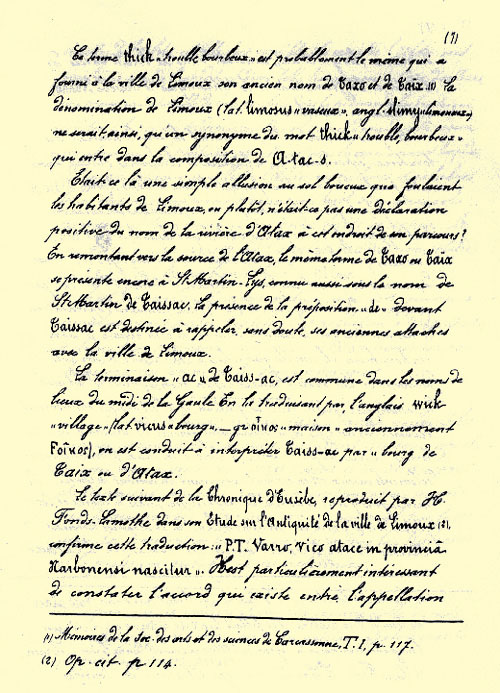 (7)
Ce terme thick « trouble, bourbeux » est probablement le même qui a
fourni à la ville de Limoux son ancien nom de Taxo et de Taïx (1) la
dénomination de Limoux (lat. limosus « vaseux », angl. slimy « limoneux »)
ne serait ainsi, qu'un synonyme du mot thick « trouble, bourbeux »
qui entre dans la composition de A-tac-s.
Etait-ce là une simple allusion au sol boueux que foulaient
les habitants de Limoux, ou plutôt, n'était-ce pas une déclaration
positive du nom de la rivière d'Atax à cet endroit de son parcours?
En remontant vers la source de l'Atax, le même terme de Taxo ou Taïx
se présente encore à St Martin-Lys, connu aussi sous le nom de
St Martin de Taissac. La présence de la préposition « de » devant
Taissac est destinée à rappeler, sans doute, ses anciennes attaches
avec la ville de Limoux.
La terminaison « ac » de Taiss-ac, est commune dans les noms de
lieux du midi de la Gaule. En la traduisant par, l'anglais wick-
« village » (lat vicus « bourg » _ gr οἶκος « maison » anciennement
Fοῖκος), on est conduit à interpréter Taiss-ac par « bourg de
Taïx ou d'Atax.
Le texte suivant de la Chronique d'Eusèbe, reproduit par H.
Fonds-Lamothe dans son Etude sur l'Antiquité de la ville de Limoux (2),
confirme cette traduction: « P.T. Varro, vico atace in provinciâ
Narbonensi nascitur ». Il est particulièrement intéressant
de constater l'accord qui existe entre l'appellation
(1) Mémoires de la Soc. des arts et des sciences de Carcassonne, T. I, p. 117.
(2) Op. cit. p 114.